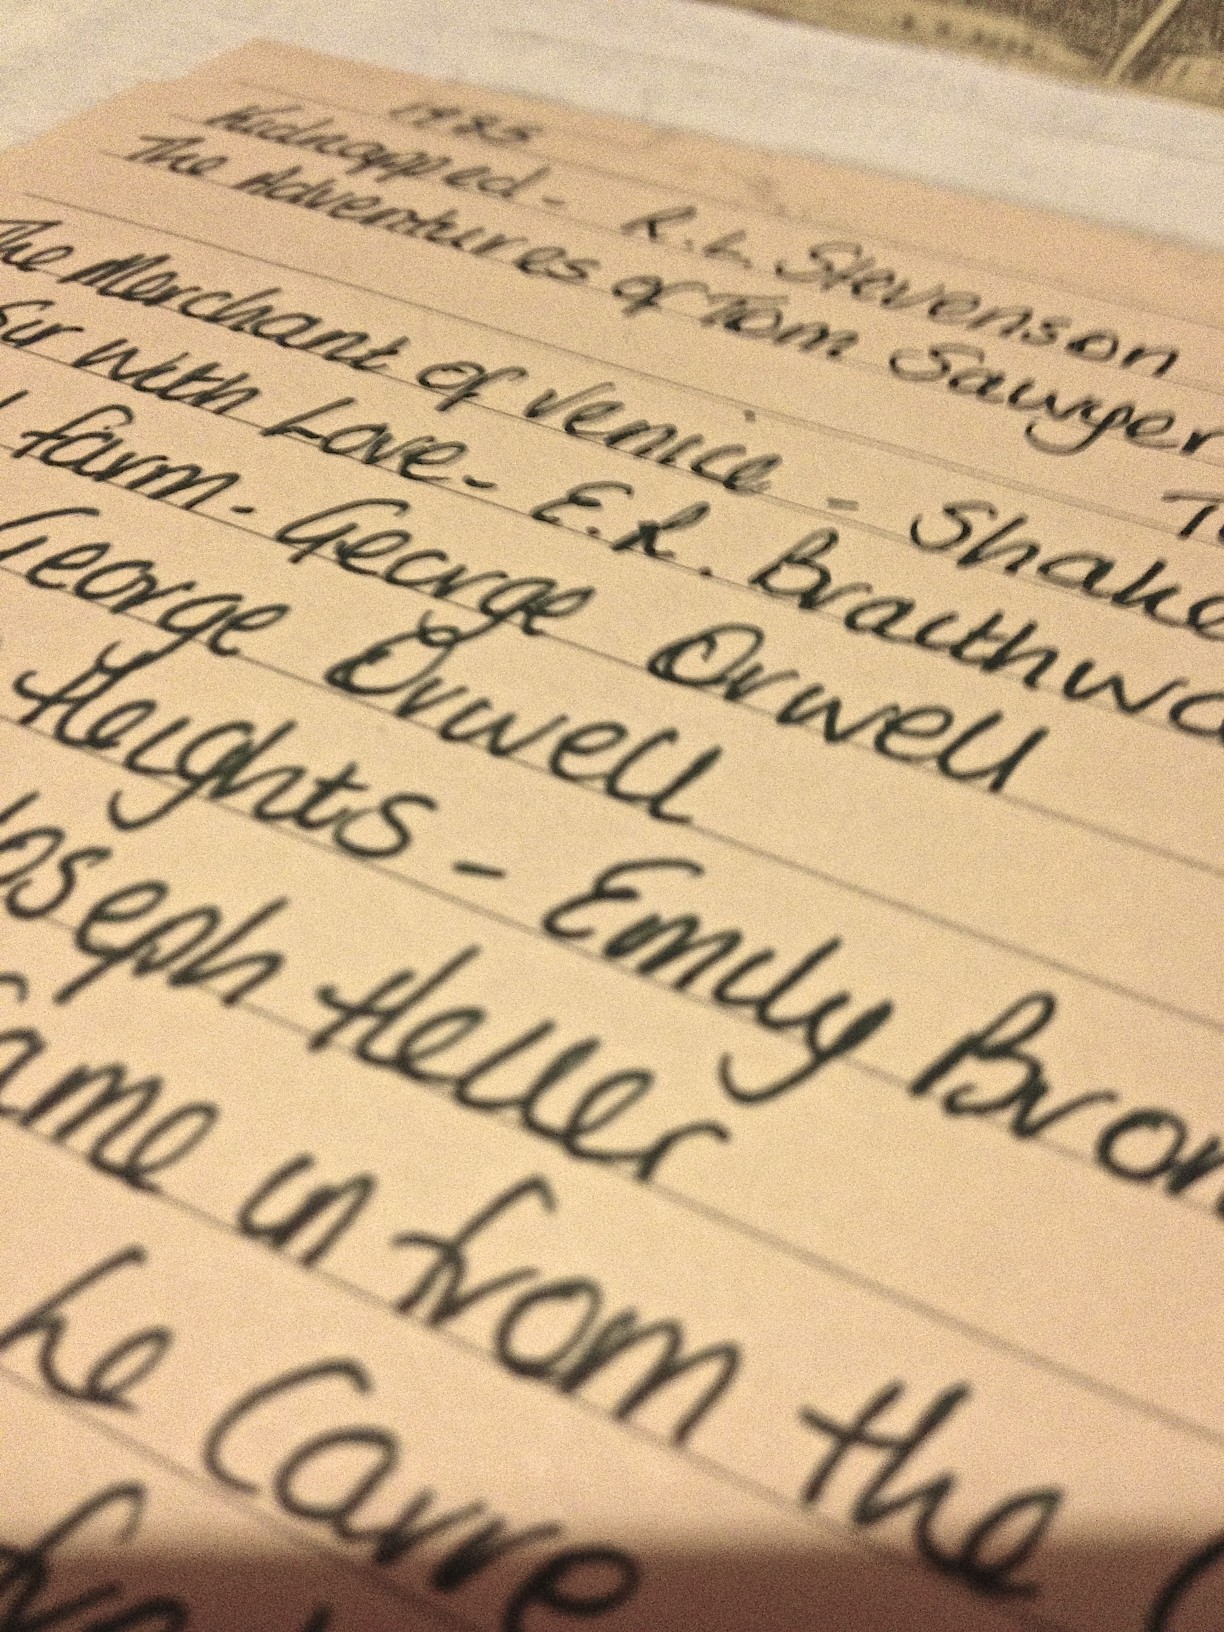 1985
Kidnapped - R.L. Stevenson
The Adventures of Tom Sawyer
The Merchant of Venice - Shake
Sir with Love - E.R. Braithwa
farm - George Orwell
George Orwell
Heights - Emily Bron
Joseph Heller
came in from the
he Carre